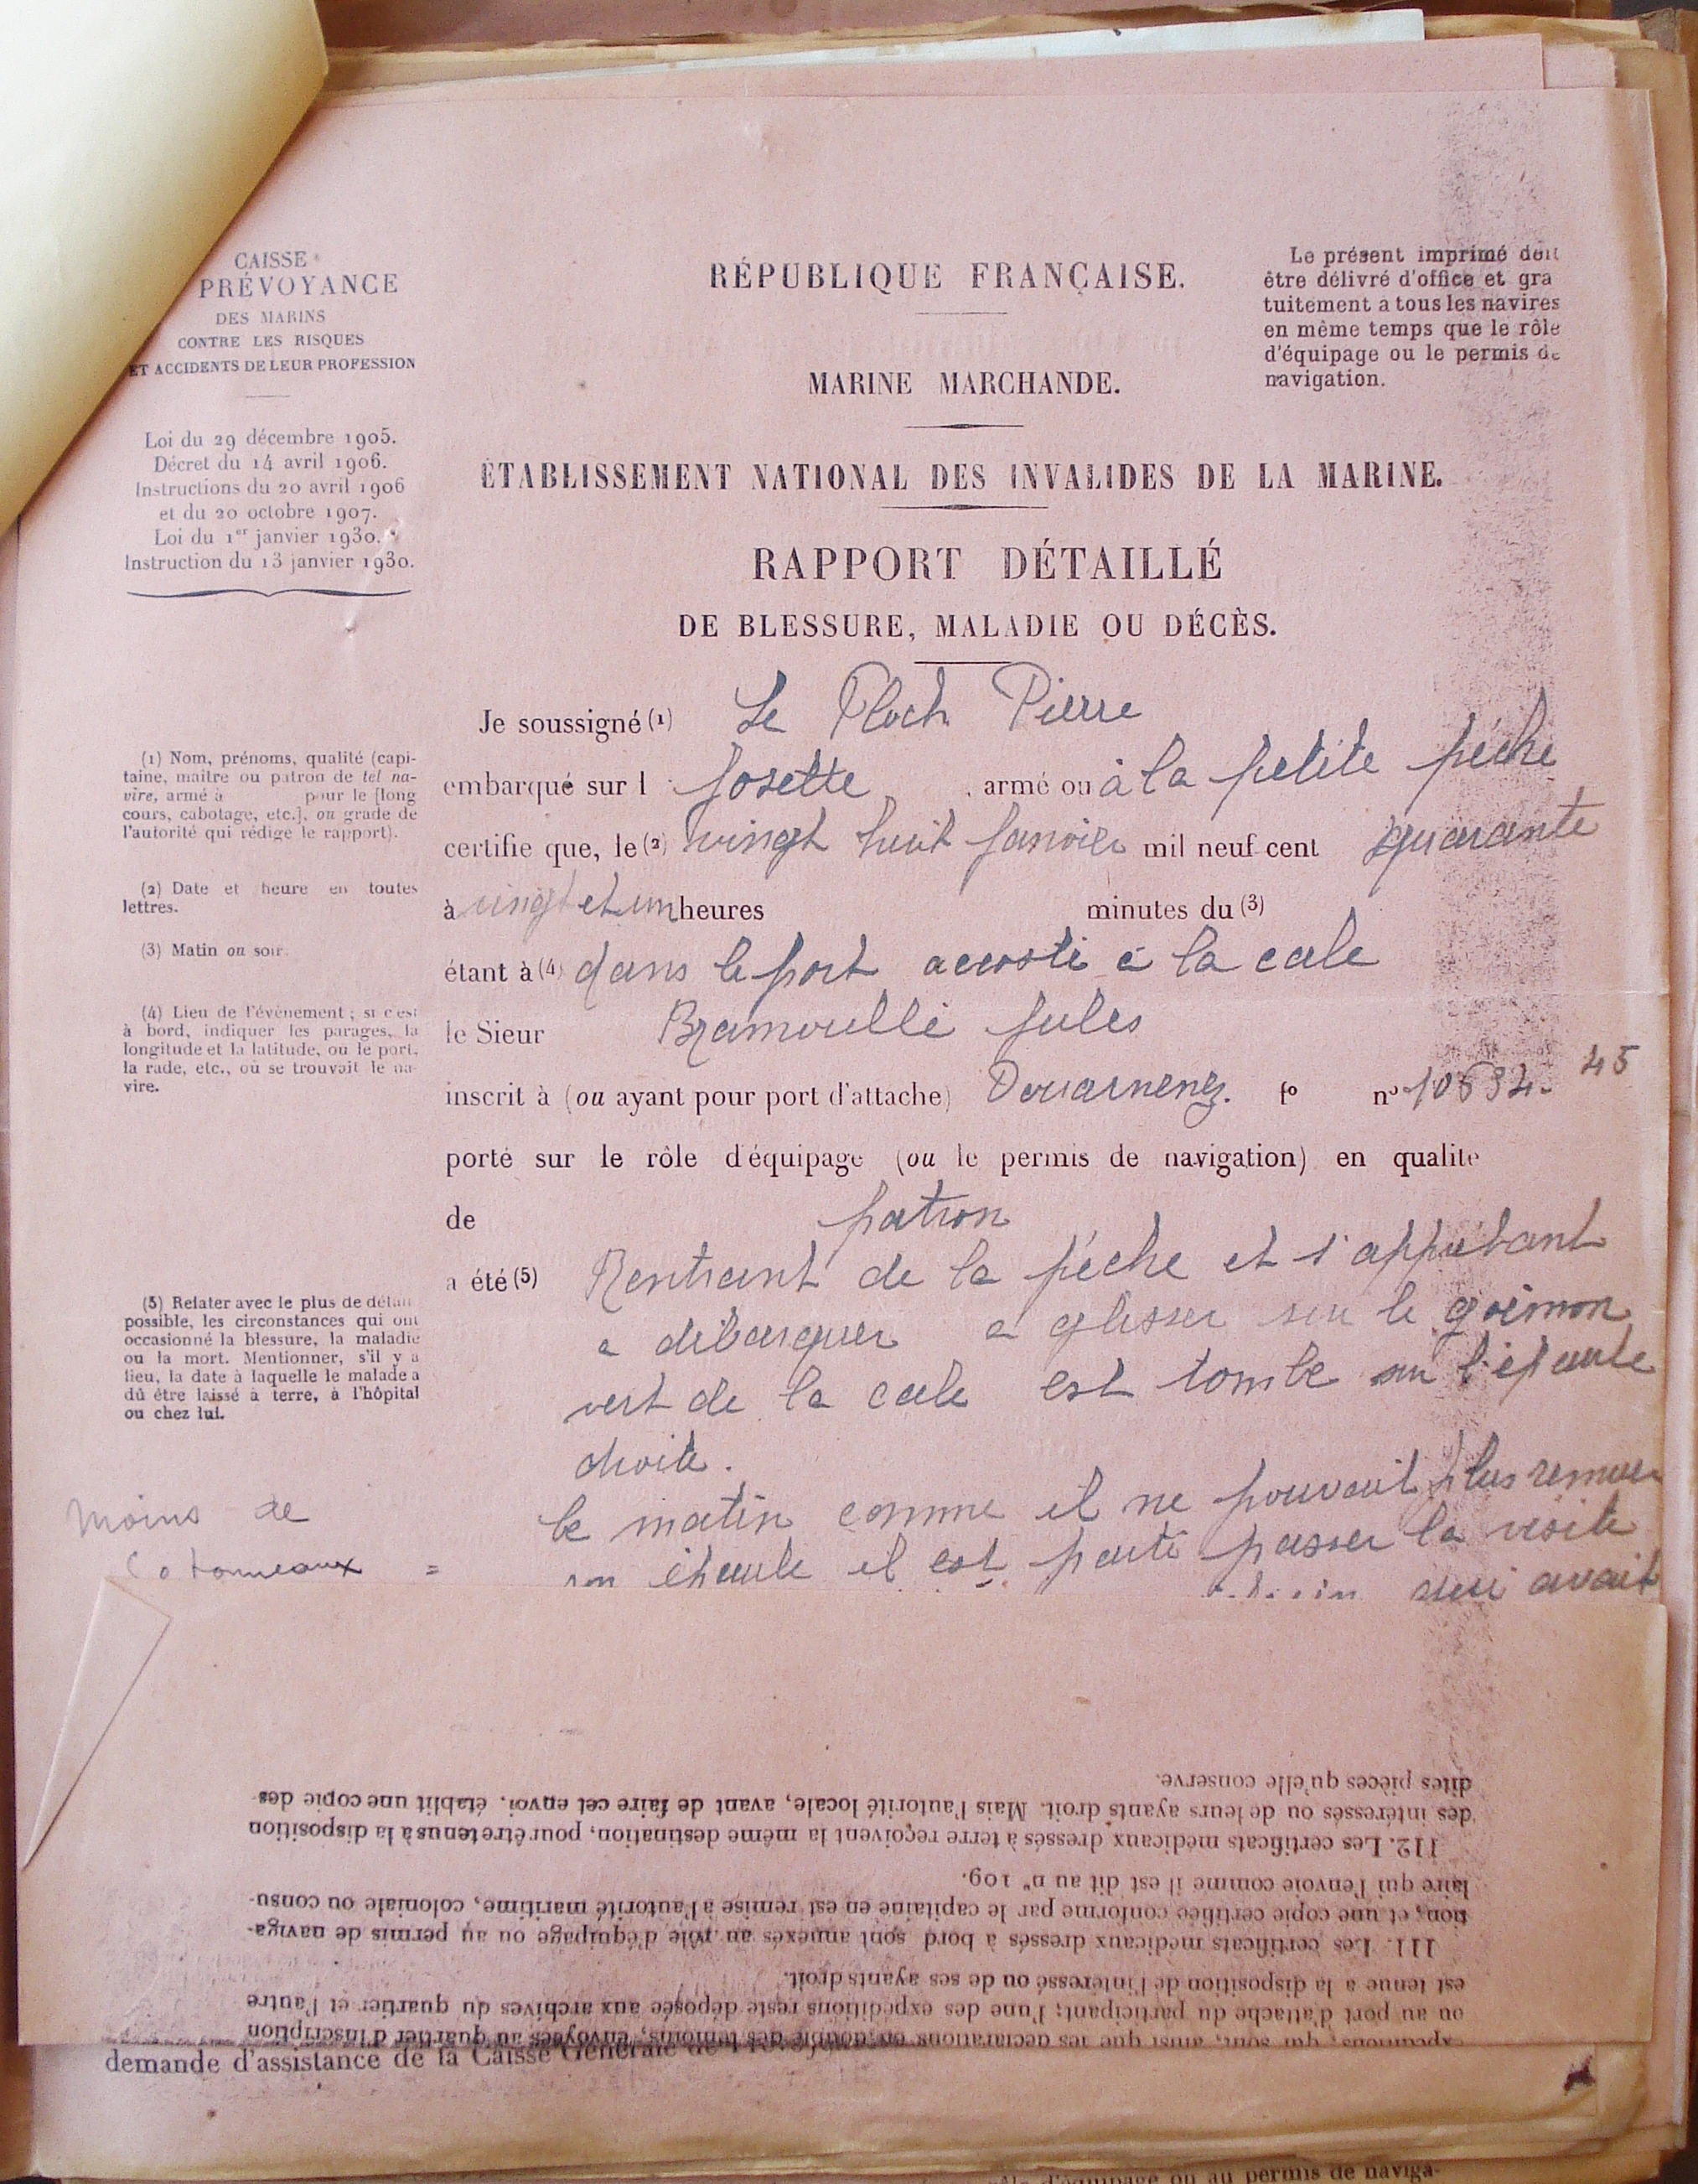 CAISSE
PRÉVOYANCE
DES MARINS
CONTRE LES RISQUES
ET ACCIDENTS DE LEUR PROFESSION
Loi du 29 décembre 1905.
Décret du 14 avril 1906.
Instructions du 20 avril 1906
et du 20 octobre 1907.
Loi du 1er janvier 1930.
Instruction du 13 janvier 1930.
RÉPUBLIQUE FRANÇAISE.
MARINE MARCHANDE.
Le présent imprimé doit
être délivré d'office et gra
tuitement à tous les navires
en même temps que le rôle
d'équipage ou le permis de
navigation.
ÉTABLISSEMENT NATIONAL DES INVALIDES DE LA MARINE.
RAPPORT DÉTAILLÉ
DE BLESSURE, MALADIE OU DÉCÈS.
Je soussigné (1) Le Floch Pierre
embarqué sur l Josette, armé ou à la petite pêche
certifie que, le (2) vingt huit Janvier mil neuf cent quarante
à vingt et un heures minutes du (3)
étant à (4) dans le port accosté à la cale
le Sieur Bramoullé Jules
inscrit à (ou ayant pour port d'attache) Douarnenez. fo no 10534. 45
porté sur le rôle d'équipage (ou le permis de navigation) en qualité
de patron
a été (5) Rentrant de la pêche et s'apprêtant
a débarquer a glisser sur le goëmon
vert de la cale est tombe sur l'épaule
droite.
le matin comme il ne pouvait plus remuer
son épaule il est parti passer la visite
qui avait
(1) Nom, prénoms, qualité (capi-
taine, maître ou patron de tel na-
vire, armé à pour le [long
cours, cabotage, etc.], ou grade de
l'autorité qui rédige le rapport).
(2) Date et heure en toutes
lettres.
(3) Matin ou soir.
(4) Lieu de l'évènement ; si c'est
à bord, indiquer les parages, la
longitude et la latitude, ou le port,
la rade, etc., où se trouvait le na-
vire.
(5) Relater avec le plus de détail
possible, les circonstances qui ont
occasionné la blessure, la maladie
ou la mort. Mentionner, s'il y a
lieu, la date à laquelle le malade a
dû être laissé à terre, à l'hôpital
ou chez lui.
moins de
tonneaux =
expéditions, qui sont, ainsi que les déclarations en double des témoins, envoyées au quartier d'inscription
ou au port d'attache du participant; l'une des expéditions reste déposée aux archives du quartier et l'autre
est tenue à la disposition de l'intéressé ou de ses ayants droit.
111. Les certificats médicaux dressés à bord sont annexés au rôle d'équipage ou au permis de naviga-
tion, et une copie certifiée conforme par le capitaine en est remise à l'autorité maritime, coloniale ou consu-
laire qui l'envoie comme il est dit au n° 109.
112. Les certificats médicaux dressés à terre reçoivent la même destination, pour être tenus à la disposition
des intéressés ou de leurs ayants droit. Mais l'autorité locale, avant de faire cet envoi, établit une copie des-
dites pièces qu'elle conserve.
demande d'assistance de la Caisse Générale de
d'équipage ou au permis de naviga-